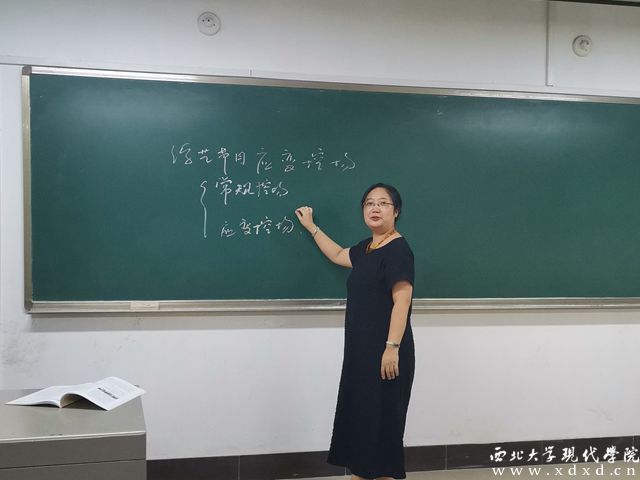 综艺节目应变控场
常规控场
应变控场
西北大学现代学院
www.xdxd.cn